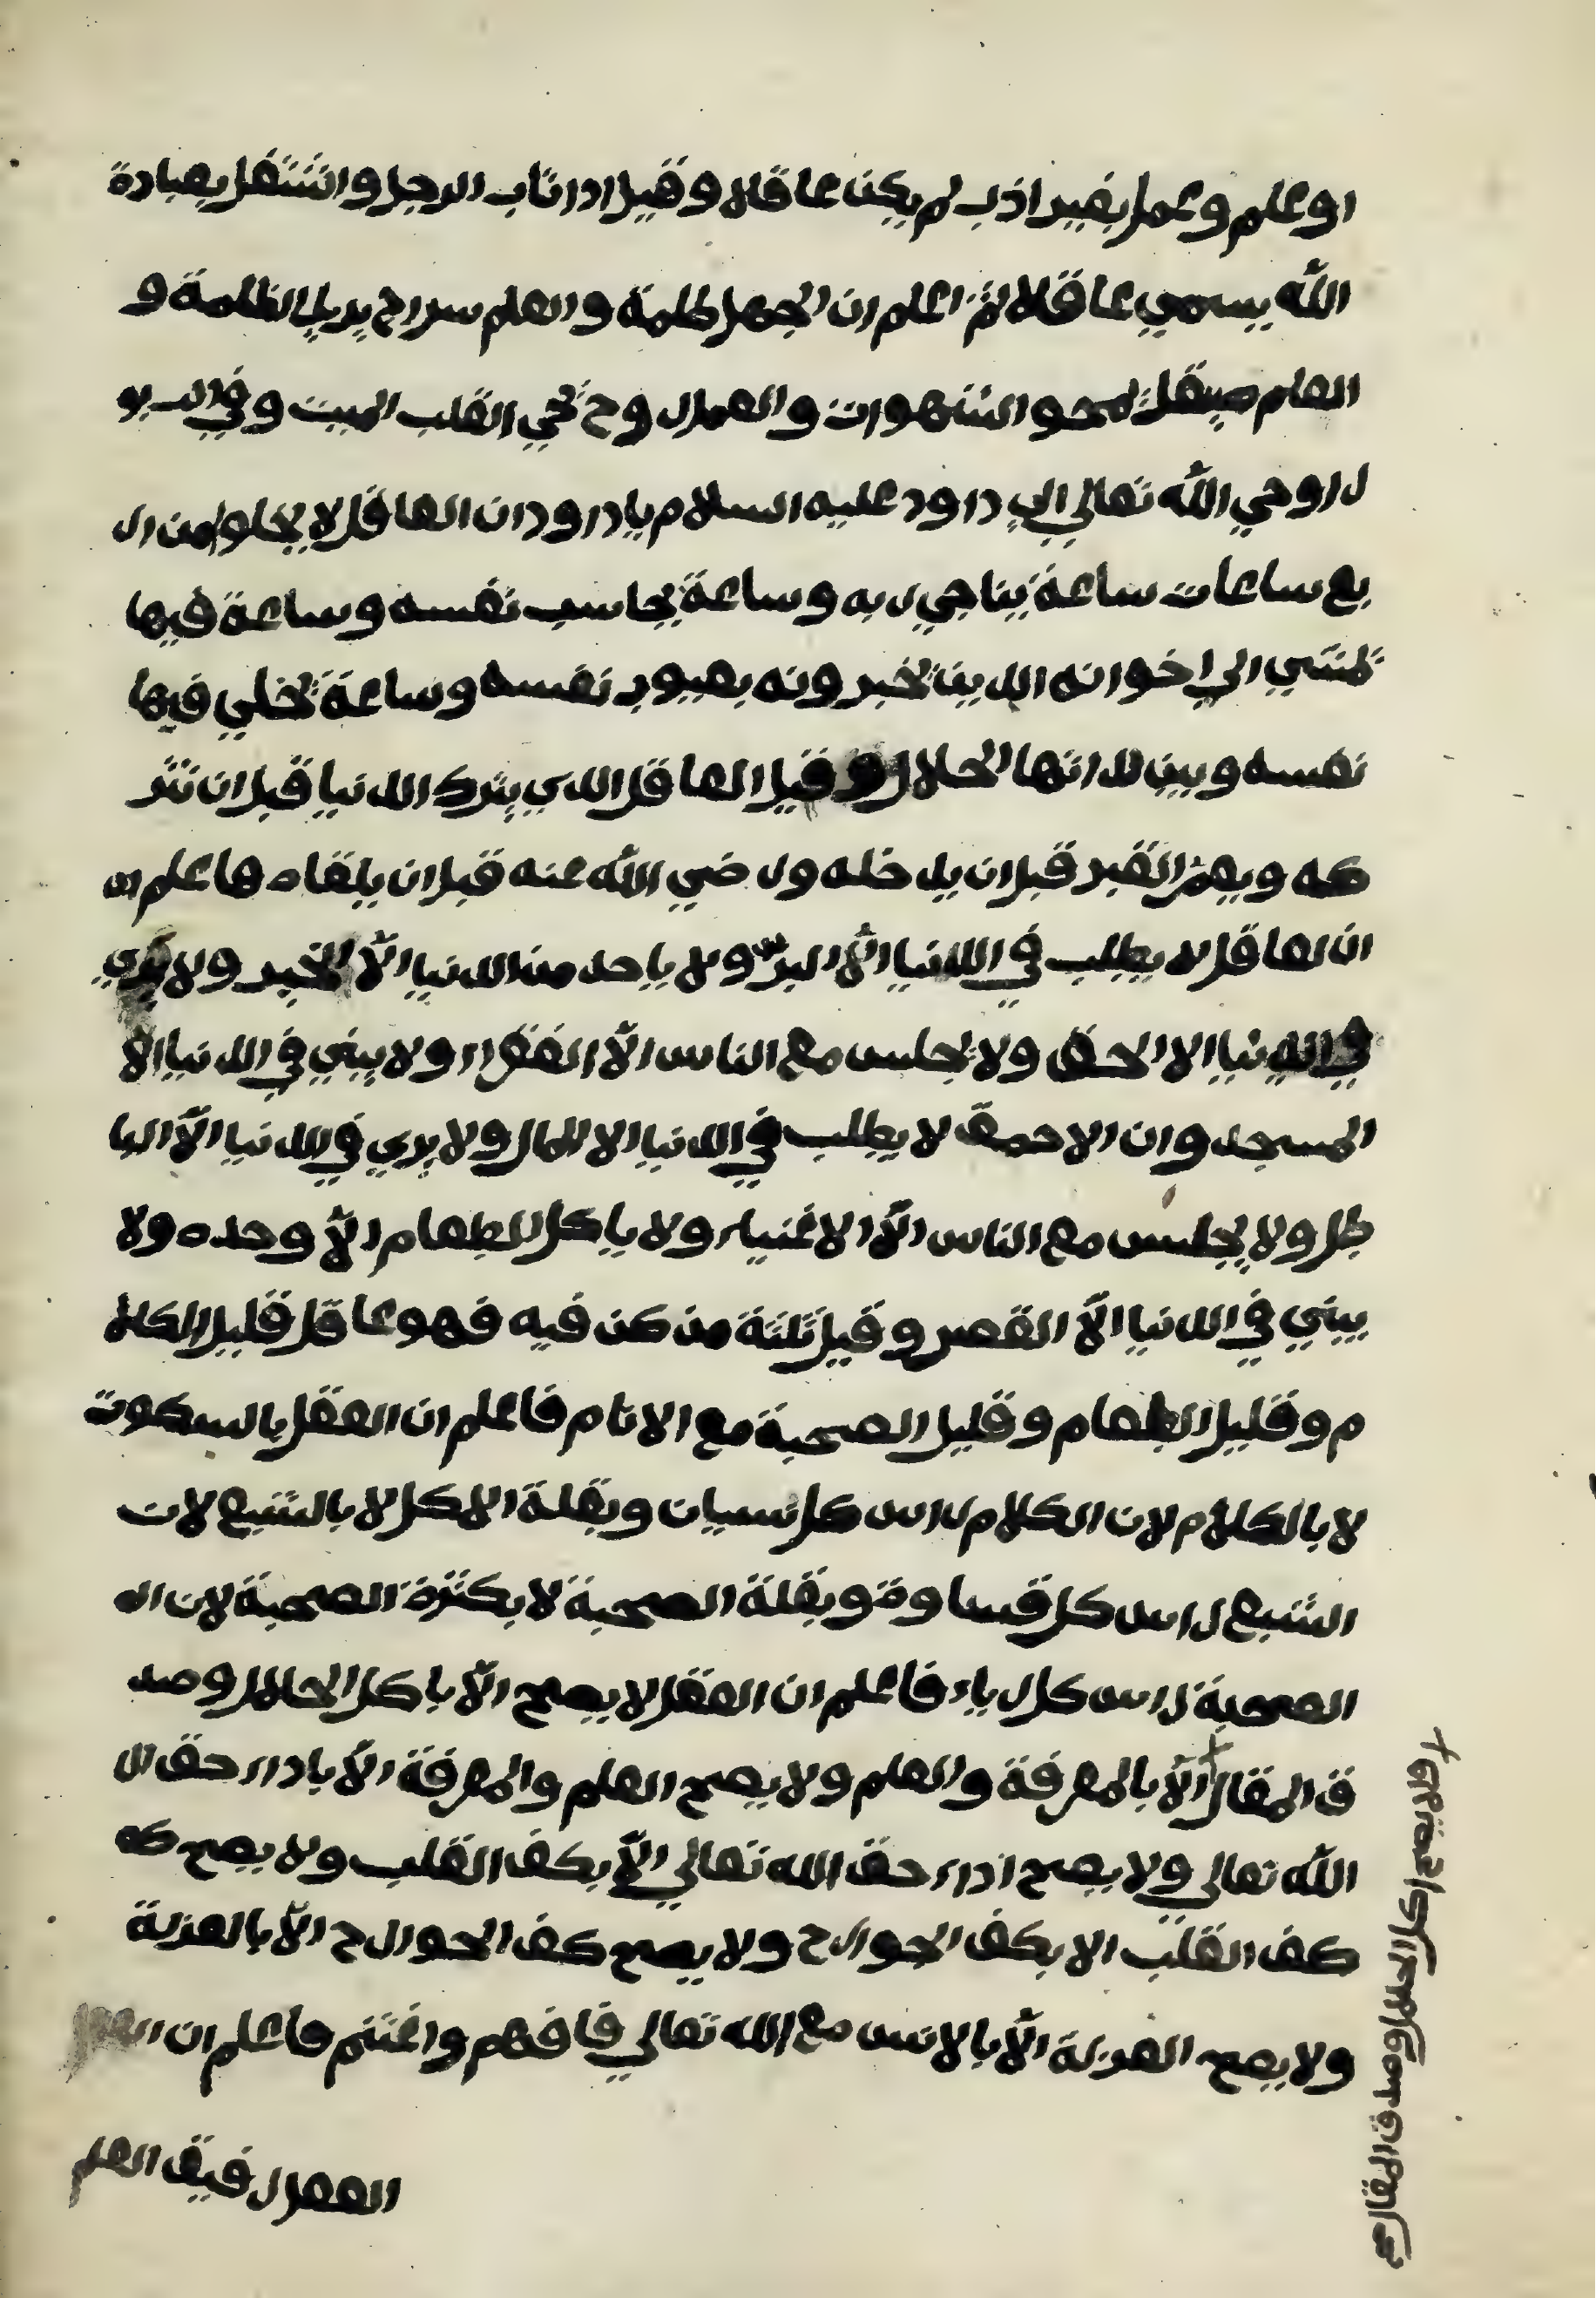 او علم وعمل بغير اذب لم يكن عاقلا وقيل ادا تاب الرجل واشتغل بعبادة
الله يسمي عاقلا ثم اعلم ان الجهل ظلمة والعلم سراج يزيل الظلمة و
العلم صيقل لمحو الشهوات والعمل روح تحي القلب الميت وفي الزبو
ر اوحي الله تعالي الي داوود عليه السلام يا داوود ان العاقل لا يخلوا من ار
بع ساعات ساعة يناجي ربه وساعة يحاسب نفسه وساعة فيها
تمشي الي اخوانه الدين تخبرونه بعيوب نفسه وساعة تخلي فيها
نفسه وبين لداتها الحلال وقيل العاقل الدي يترك الدنيا قبل ان تتر
كه ويعمر القبر قبل ان يدخله ورضي الله عنه قبل ان يلقاه فاعلم ان
ان العاقل لا يطلب في الدنيا الّا البرّ ولا ياخد من الدنيا الّا الخير ولا يري
في الدنيا الا الحق ولا يجلس مع الناس الّا الفقراء ولا يبني في الدنيا الّا
المسجد وان الاحمق لا يطلب في الدنيا الا المال ولا يري في الدنيا الّا البا
طل ولا يجلس مع الناس الّا الاغنياء ولا ياكل الطعام الّا وحده ولا
يبني في الدنيا الّا القصر وقيل ثلثة من كن فيه فهو عاقل قليل الكلا
م وقليل الطعام وقليل الصحبة مع الانام فاعلم ان العقل بالسكوت
لا بالكلام لان الكلام راس كل نسيان وبقلة الاكل لا بالشبع لان
الشبع راس كل قساوة وبقلة الصحبة لا بكثرة الصحبة لان ال
الصحبة راس كل رياء فاعلم ان العقل لا يصح الّا باكل الحلال وصد
ق المقال الّا بالمعرفة والعلم ولا يصح العلم والمعرفة الّا باداء حق ال
الله تعالي ولا يصح اداء حق الله تعالي الّا بكف القلب ولا يصح كف
كف القلب الا بكف الجوارح ولا يصح كف الجوارح الّا بالعزلة
ولا يصح العزلة الّا بالانس مع الله تعالي فافهم واغتنم فاعلم ان العقل
العقل رفيق العلم
اكل الحلال وصدق المقال صح